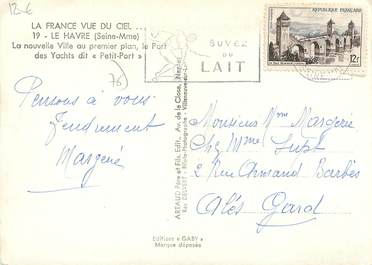 12-6
LA FRANCE VUE DU CIEL ...
19 - LE HAVRE (Seine-Mme)
La nouvelle Ville au premier plan, le Port
des Yachts dit « Petit-Port »
76
BUVEZ
DU
LAIT
RÉPUBLIQUE FRANÇAISE
12F
Pensons à vous
Tendrement
Monsieur Mme Margerie
Chez Mme
2 Rue Armand Barbès
Alès Gard
ARTAUD Père et Fils, Edit., Av. de la Close, Nantes
Editions « GABY »
Marque déposée